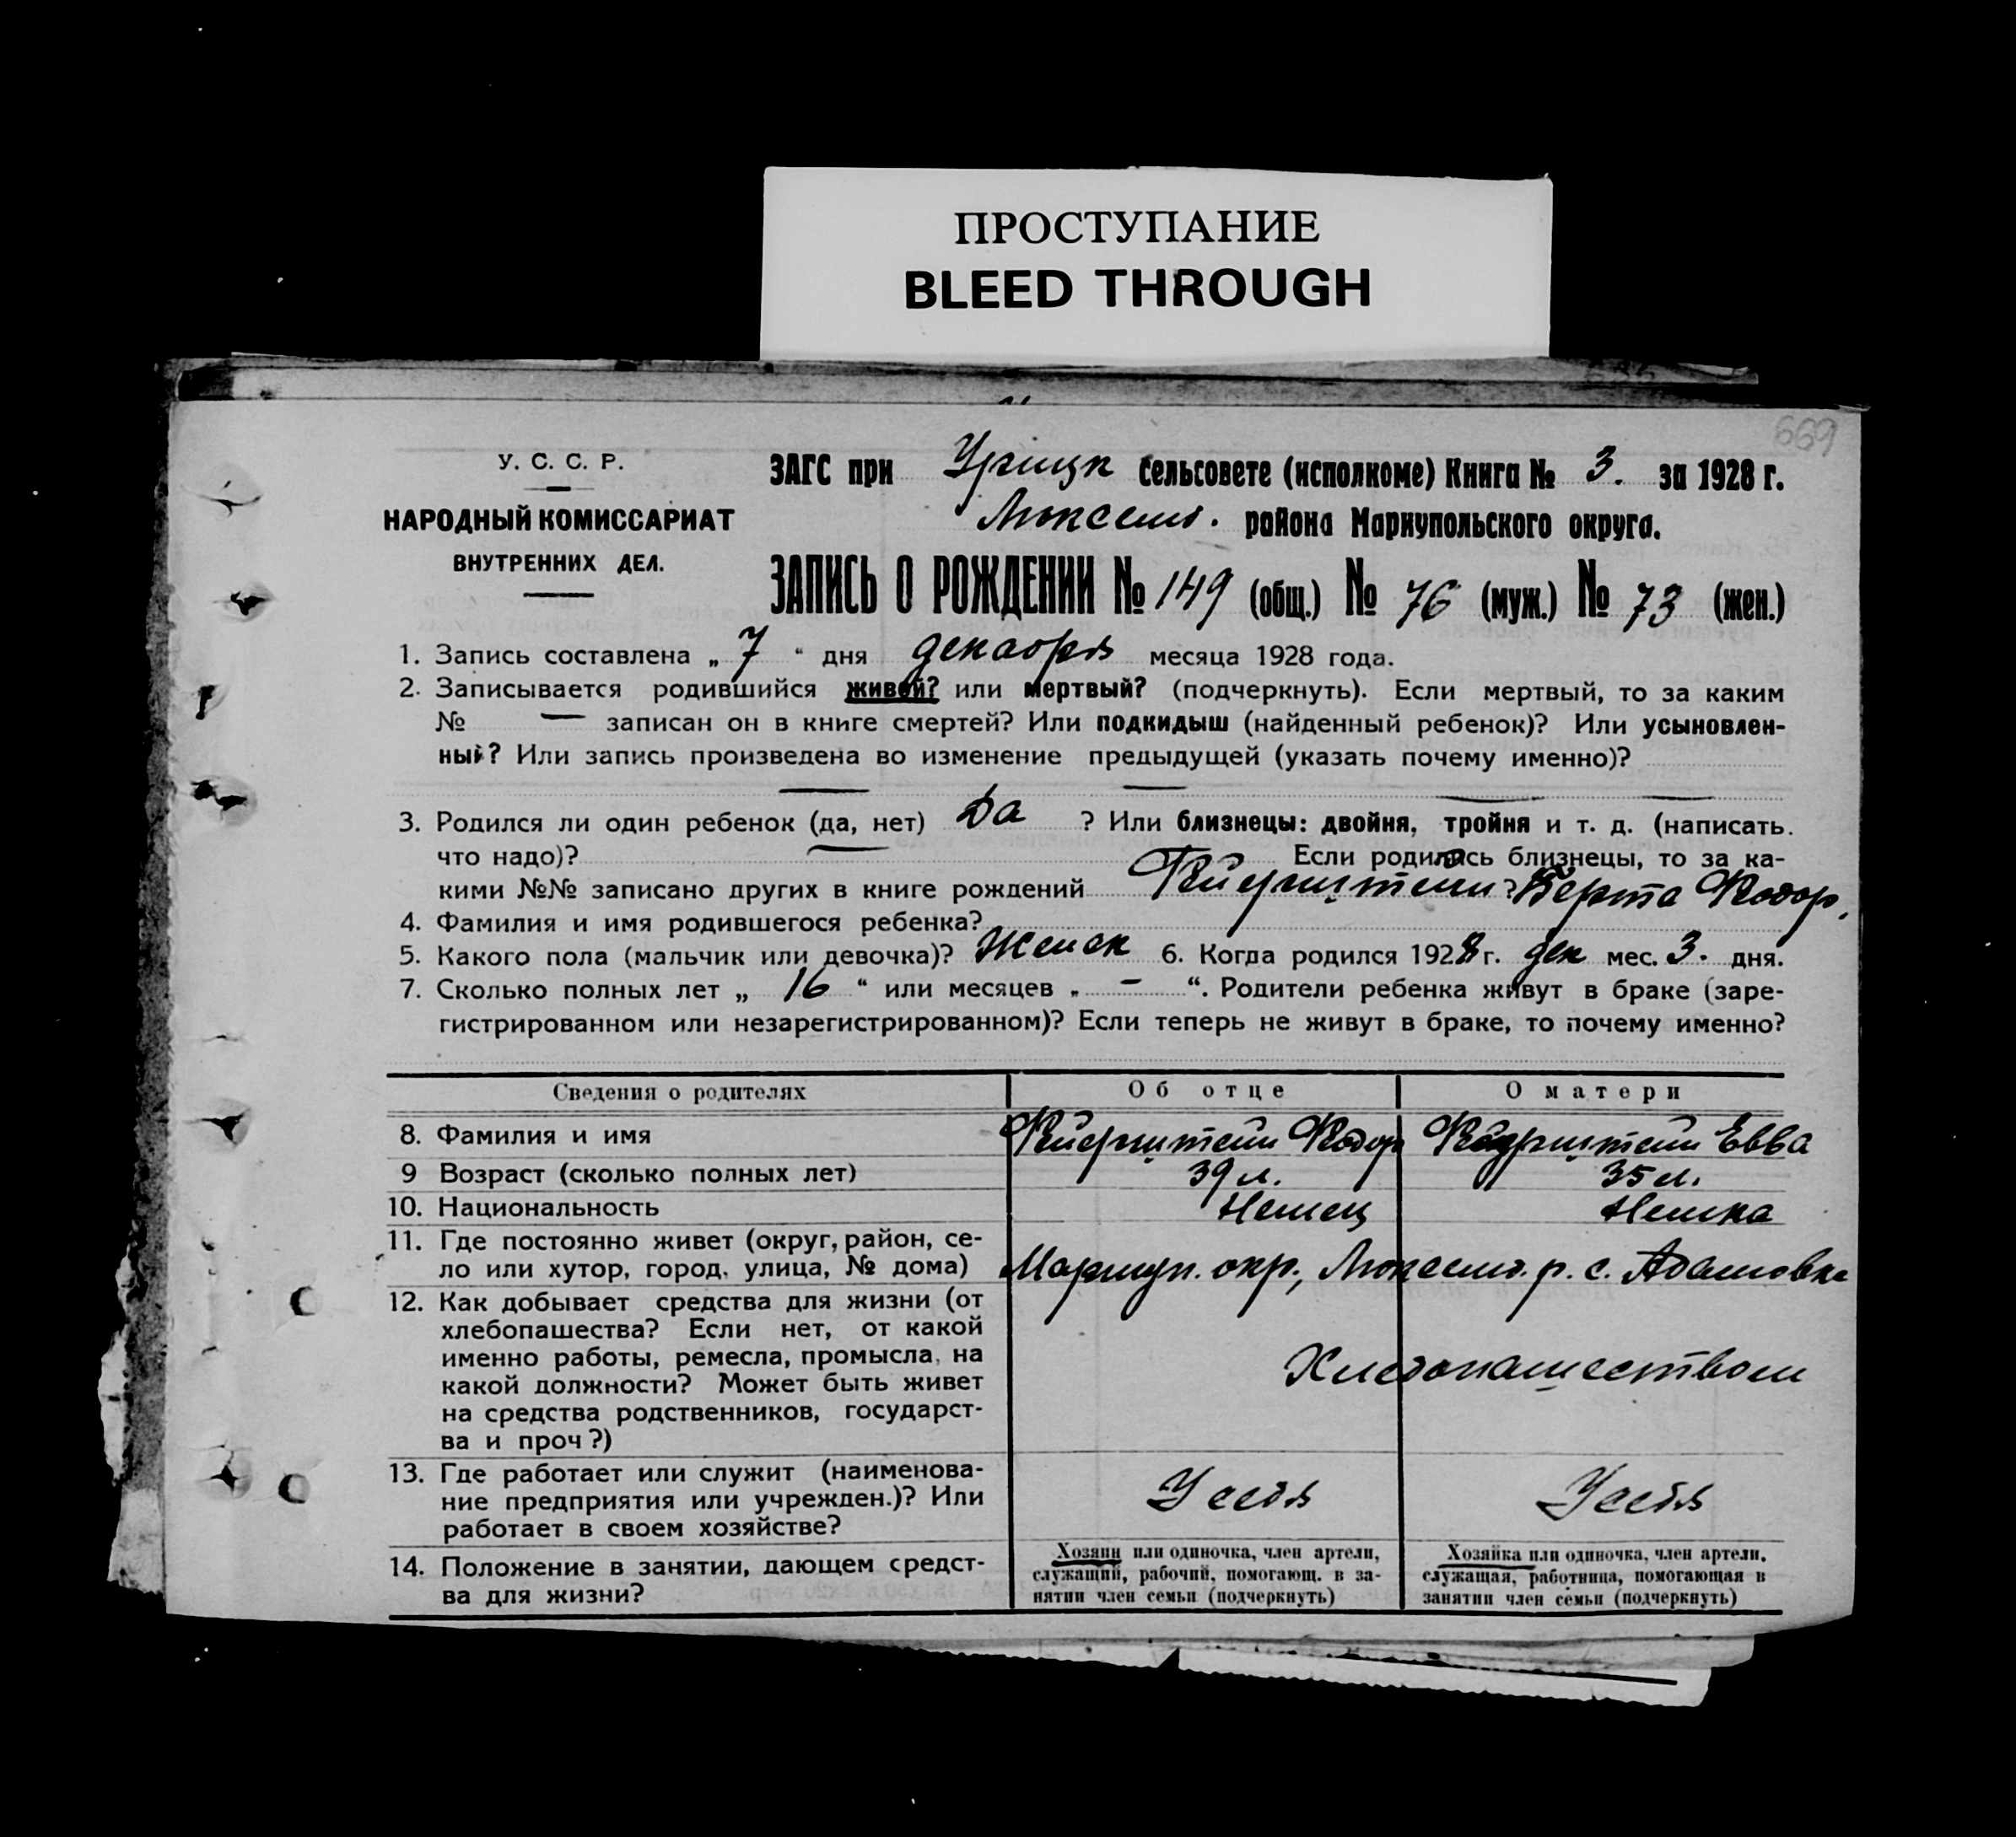 ПРОСТУПАНИЕ
BLEED THROUGH
669
У. С. С. Р.
НАРОДНЫЙ КОМИССАРИАТ
ВНУТРЕННИХ ДЕЛ.
ЗАГС при Урицк сельсовете (исполкоме) Книга № 3. за 1928 г.
Люксемб. района Мариупольского округа.
ЗАПИСЬ О РОЖДЕНИИ № 149 (общ.) № 76 (муж.) № 73 (жен.)
1. Запись составлена „ 7 “ дня декабря месяца 1928 года.
2. Записывается родившийся живой? или мертвый? (подчеркнуть). Если мертвый, то за каким
№ — записан он в книге смертей? Или подкидыш (найденный ребенок)? Или усыновлен-
ный? Или запись произведена во изменение предыдущей (указать почему именно)?
3. Родился ли один ребенок (да, нет) Да ? Или близнецы: двойня, тройня и т. д. (написать.
что надо)? — Если родились близнецы, то за ка-
кими №№ записано других в книге рождений ?
Берта
4. Фамилия и имя родившегося ребенка?
5. Какого пола (мальчик или девочка)? Женск 6. Когда родился 1928 г. дек мес. 3. дня.
7. Сколько полных лет „ 16 “ или месяцев „ - “. Родители ребенка живут в браке (заре-
гистрированном или незарегистрированном)? Если теперь не живут в браке, то почему именно?
Сведения о родителях Об отце О матери
8. Фамилия и имя Евва
9 Возраст (сколько полных лет) 39 л. 35 л.
10. Национальность Немец Немка
11. Где постоянно живет (округ, район, се-
ло или хутор, город, улица, № дома) Мариуп. окр., Люксемб. р. с. Адамовка
12. Как добывает средства для жизни (от
хлебопашества? Если нет, от какой
именно работы, ремесла, промысла, на
какой должности? Может быть живет
на средства родственников, государст-
ва и проч?)
Хлебопашеством
13. Где работает или служит (наименова-
ние предприятия или учрежден.)? Или
работает в своем хозяйстве?
У себя У себя
14. Положение в занятии, дающем средст-
ва для жизни?
Хозяин или одиночка, член артели,
служащий, рабочий, помогающ. в за-
нятии член семьи (подчеркнуть)
Хозяйка или одиночка, член артели,
служащая, работница, помогающая в
занятии член семьи (подчеркнуть)